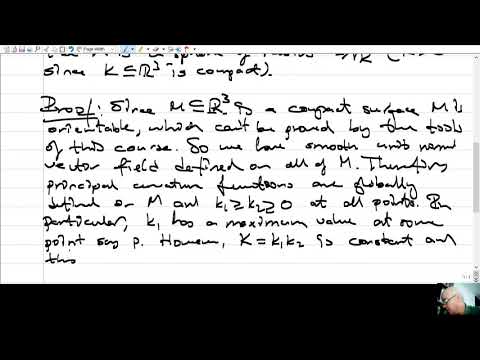 since K ⊆ ℝ³ is compact).
Proof: Since M ⊆ ℝ³ is a compact surface M is
orientable, which can't be proved by the tools
of this course. So we have smooth unit normal
vector field defined on all of M. Therefore
principal curvature functions are globally
defined on M and k₁ ≥ k₂ ≥ 0 at all points. In
particular, k₁ has a maximum value at some
point say p. However, K = k₁k₂ is constant and
this